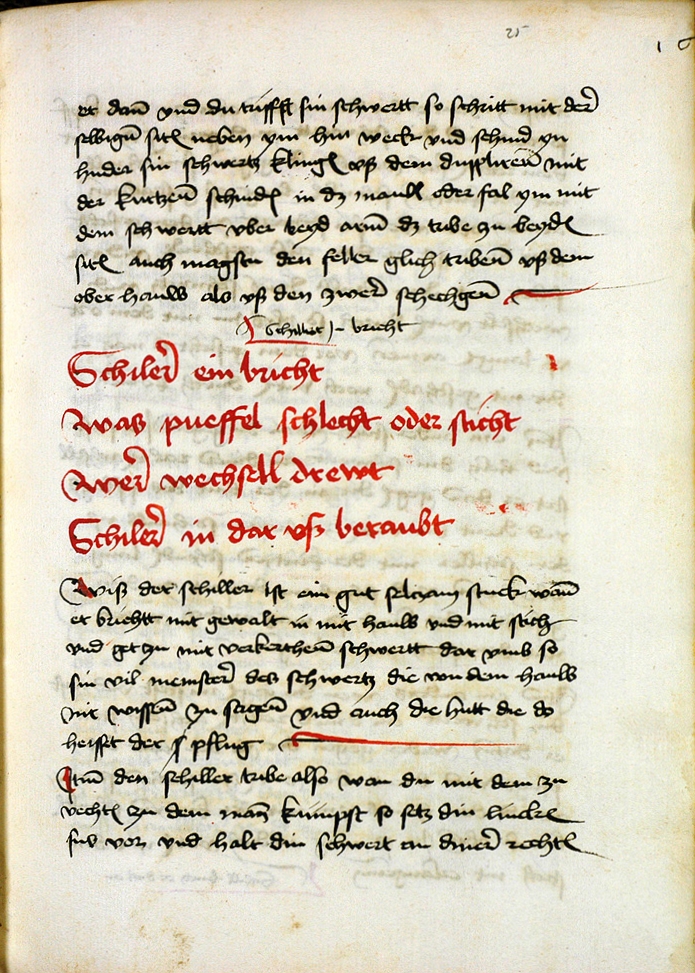 25
1 6
er dam̄ vnd du triffst sin schwertt so schritt mit der
selbigñ sitẽ neben ym hin weck vnd schnid yn
hinder sin schwertz klingẽ vß dem duplirem̄ mit
der kurtzen̄ schnidẽ in dz maull oder fal ym mit
dem schwertt vber beyd arm̄ dz tribe zu beydẽ
sitẽ auch magstu den feller glich triben̄ vß dem
ober hauw als vß den zwer schlechgen̄
Schiller in bricht
Schiler ein bricht
was pueffel schlecht oder sticht
wer wechsell drewt
Schiler in dar vß beraubt
Wiß der schiller ist ein gut selczam stuck wan̄
er brichtt mit gewalt in mit hauw vnd mit stich
vnd get zu mit verkerthem̄ schwertt dar vmb so
sin vil meinster des schwertz die von dem hauw
nit wissen̄ zu sagen̄ vnd auch die hutt die do
heisset der pflug
Itm̄ den schiller tribe also wan du mit dem zu
vechtẽ zu dem man̄ kumpst so setz din linckẽ
fus vor vnd halt din schwert an diner rechtẽ